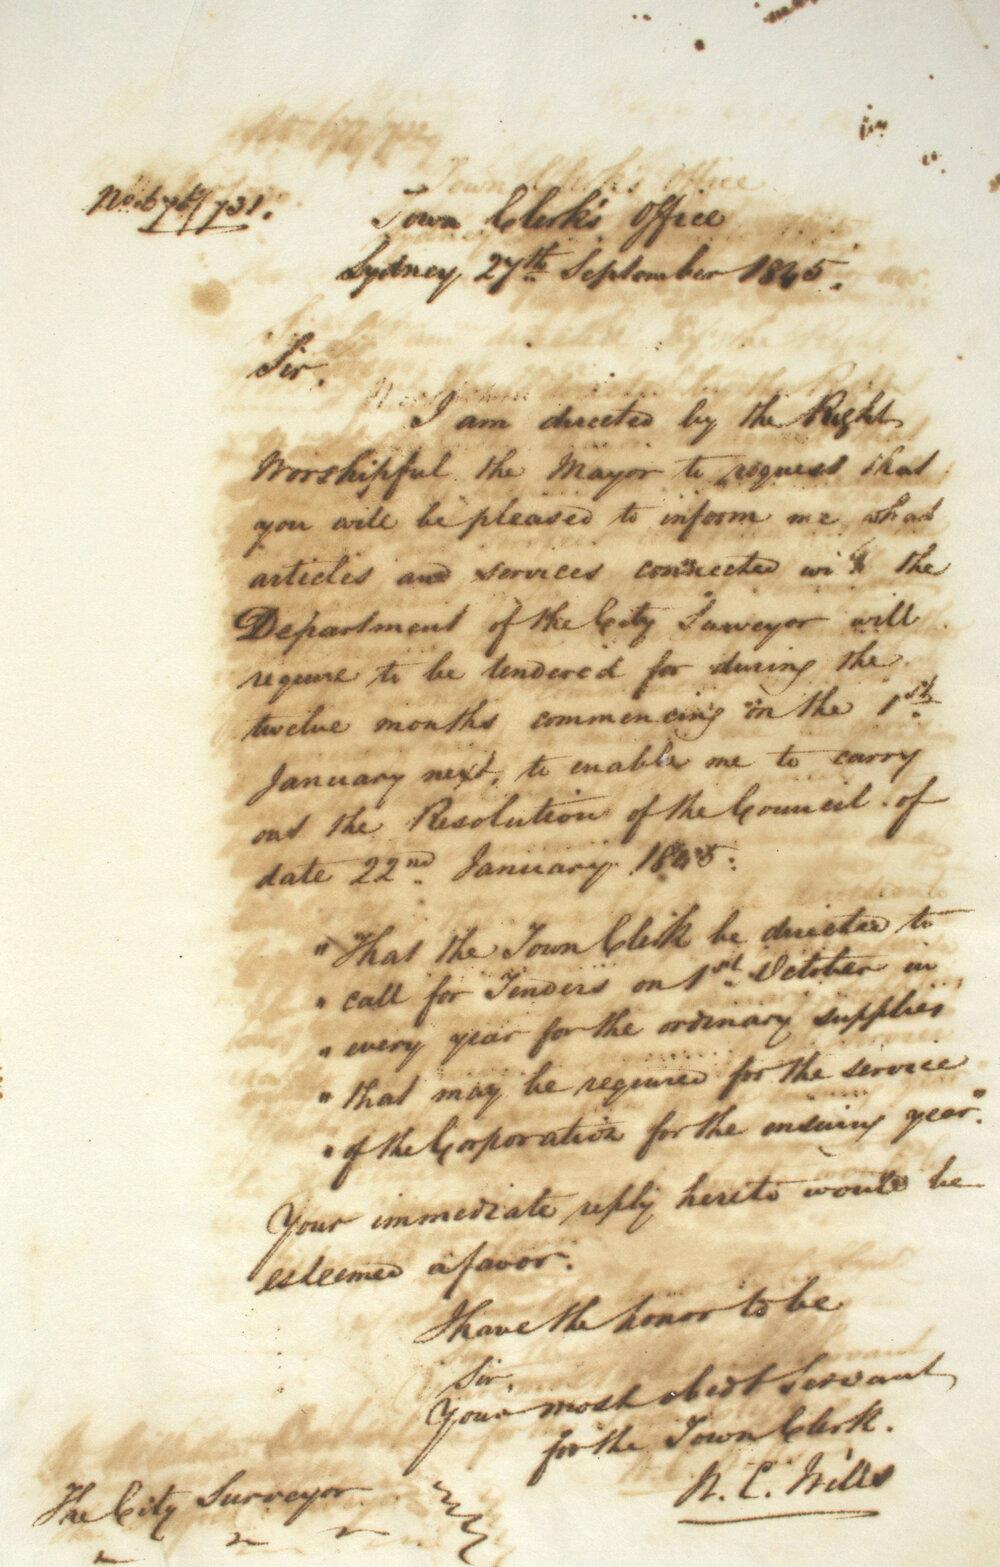 Town Clerk's Office
Sydney 27th September 1845.
Sir,
I am directed by the Right
Worshipful the Mayor to request that
you will be pleased to inform me what
articles and services connected with the
Department of the City Surveyor will
require to be tendered for during the
twelve months commencing on the 1st
January next, to enable me to carry
out the Resolution of the Council of
date 22nd January 1845:
"That the Town Clerk be directed to
" call for Tenders on 1st October in
" every year for the ordinary supplies
" that may be required for the service
" of the Corporation for the ensuing year."
Your immediate reply hereto would be
esteemed a favor.
I have the honor to be
Sir,
Your most obedt Servant
for the Town Clerk.
W. C. Wills
The City Surveyor